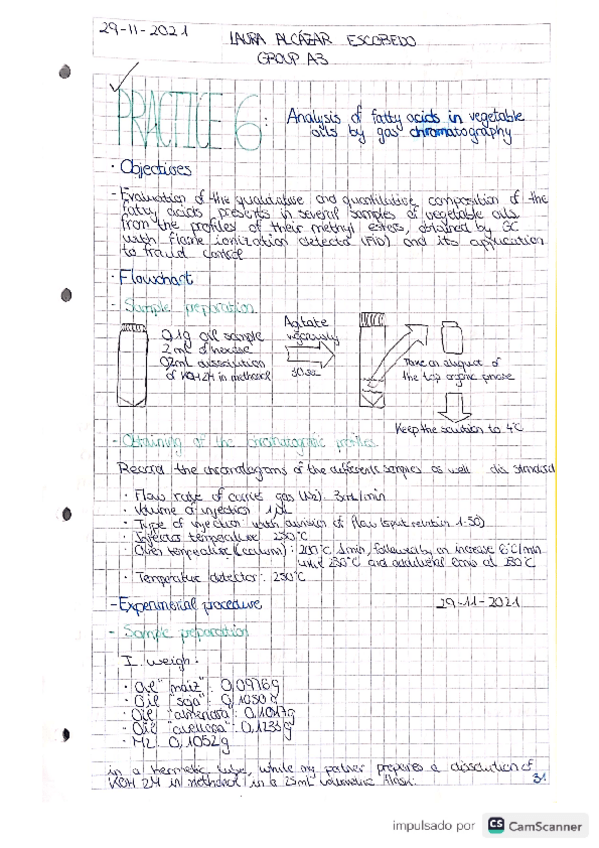 29-11-2021
LAURA ALCÁZAR ESCOBEDO
GROUP A3
PRACTICE 6: Analysis of fatty acids in vegetable
oils by gas chromatography
· Objectives
- Evaluation of the qualitative and quantitative composition of the
fatty acids presents in several samples of vegetable oils
from the profiles of their methyl esters, obtained by GC
with flame ionization detector (FID) and its application
to fraud control
· Flowchart
- Sample preparation
0,1g oil sample
2 mL of hexane
0,2mL dissolution
of KOH 2M in methanol
Agitate
vigorously
30 sec
Take an aliquot of
the top organic phase
Keep the solution to 4°C
- Obtaining of the chromatographic profiles
Record the chromatograms of the different samples as well standard
· Flow rate of carrier gas (N2): 3mL/min
· Volume of injection 1 µL
· Type of injection: with division of flow (split 1:50)
· Injector temperature 250°C
· Oven temperature (column): 200°C 1min, followed by an increase 6°C/min
until 230°C and additional time at 230°C
· Temperature detector: 250°C
- Experimental procedure
29-11-2021
- Sample preparation
I weigh:
· Oil "maíz": 0,0976g
· Oil "soja": 0,1050g
· Oil "almendra": 0,1017g
· Oil "avellana": 0,1235g
· M2: 0,1052g
in a hermetic tube, while my partner prepares a dissolution of
KOH 2M in methanol in a 25mL volumetric flask.
31
impulsado por CS CamScanner